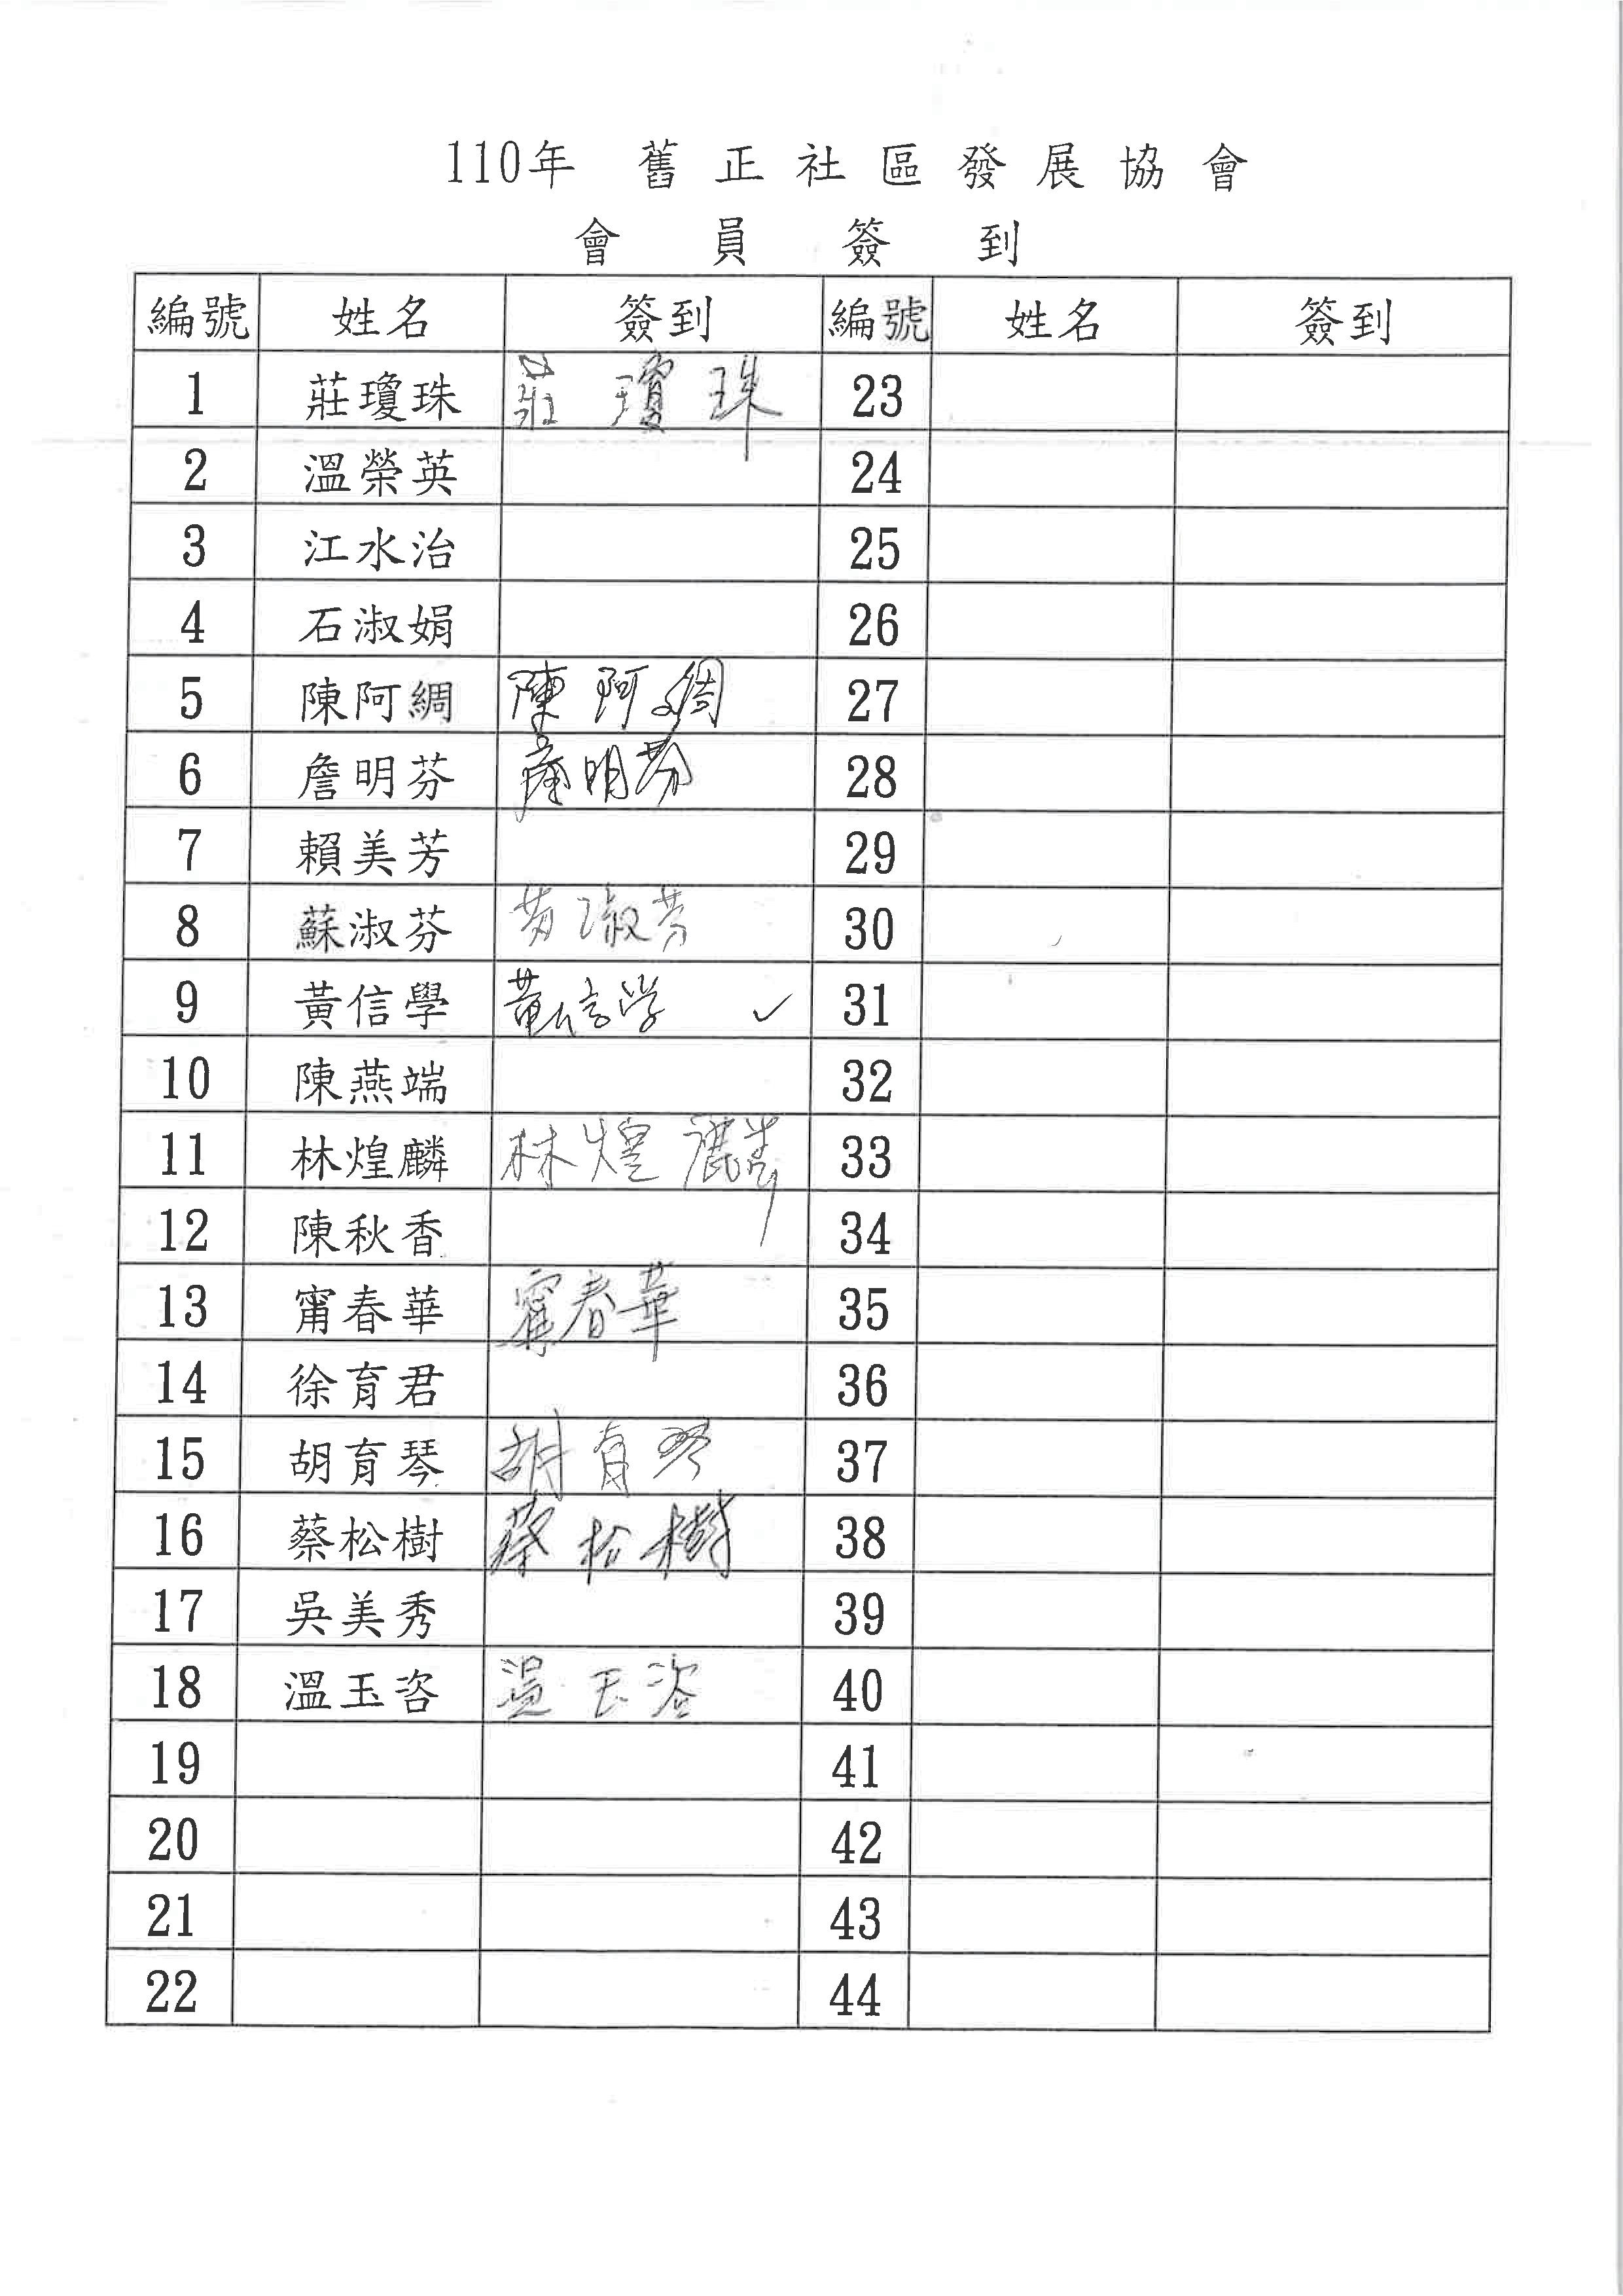 110年 舊正社區發展協會
會員簽到
編號 姓名 簽到 編號 姓名 簽到
1 莊瓊珠 莊瓊珠 23
2 溫榮英 24
3 江水治 25
4 石淑娟 26
5 陳阿綢 陳阿綢 27
6 詹明芬 詹明芬 28
7 賴美芳 29
8 蘇淑芬 淑芬 30
9 黃信學 黃信学 ✓ 31
10 陳燕端 32
11 林煌麟 林煌麟 33
12 陳秋香 34
13 甯春華 甯春華 35
14 徐育君 36
15 胡育琴 胡育琴 37
16 蔡松樹 蔡松樹 38
17 吳美秀 39
18 溫玉咨 溫玉咨 40
19 41
20 42
21 43
22 44